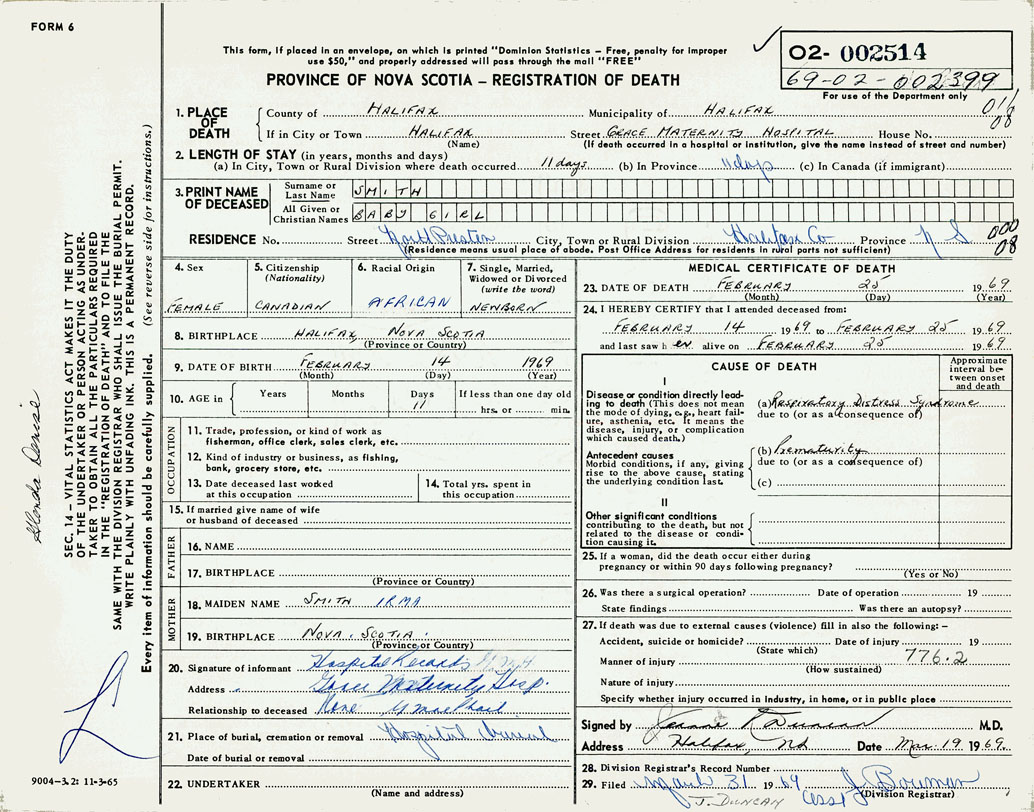 FORM 6
This form, if placed in an envelope, on which is printed "Dominion Statistics – Free, penalty for improper
use $50," and properly addressed will pass through the mail "FREE"
PROVINCE OF NOVA SCOTIA – REGISTRATION OF DEATH
02- 002514
69-02-002399
For use of the Department only
1. PLACE OF DEATH
County of HALIFAX Municipality of HALIFAX
If in City or Town HALIFAX Street GRACE MATERNITY HOSPITAL House No.
(Name) (If death occurred in a hospital or institution, give the name instead of street and number)
2. LENGTH OF STAY (in years, months and days)
(a) In City, Town or Rural Division where death occurred 11 days (b) In Province 11 days (c) In Canada (if immigrant)
3. PRINT NAME OF DECEASED
Surname or Last Name SMITH
All Given or Christian Names BABY GIRL
RESIDENCE No. Street North Preston City, Town or Rural Division Halifax Co Province N S
(Residence means usual place of abode. Post Office Address for residents in rural parts not sufficient)
000
08
4. Sex
FEMALE
5. Citizenship
(Nationality)
CANADIAN
6. Racial Origin
AFRICAN
7. Single, Married,
Widowed or Divorced
(write the word)
NEWBORN
8. BIRTHPLACE HALIFAX, NOVA SCOTIA
(Province or Country)
9. DATE OF BIRTH FEBRUARY 14 1969
(Month) (Day) (Year)
10. AGE in
Years Months Days If less than one day old
11 hrs. or min.
OCCUPATION
11. Trade, profession, or kind of work as
fisherman, office clerk, sales clerk, etc.
12. Kind of industry or business, as fishing,
bank, grocery store, etc.
13. Date deceased last worked
at this occupation
14. Total yrs. spent in
this occupation
15. If married give name of wife
or husband of deceased
FATHER
16. NAME
17. BIRTHPLACE
(Province or Country)
MOTHER
18. MAIDEN NAME SMITH IRMA
19. BIRTHPLACE NOVA SCOTIA
(Province or Country)
20. Signature of informant Hospital Records
Address Grace Maternity Hosp.
Relationship to deceased None
21. Place of burial, cremation or removal Hospital burial
Date of burial or removal
22. UNDERTAKER
(Name and address)
MEDICAL CERTIFICATE OF DEATH
23. DATE OF DEATH FEBRUARY 25 1969
(Month) (Day) (Year)
24. I HEREBY CERTIFY that I attended deceased from:
FEBRUARY 14 1969 to FEBRUARY 25 1969
and last saw her alive on FEBRUARY 25 1969
CAUSE OF DEATH
Approximate
interval be-
tween onset
and death
I
Disease or condition directly lead-
ing to death (This does not mean
the mode of dying, e.g., heart fail-
ure, asthenia, etc. It means the
disease, injury, or complication
which caused death.)
(a) Respiratory Distress Syndrome
due to (or as a consequence of)
Antecedent causes
Morbid conditions, if any, giving
rise to the above cause, stating
the underlying condition last.
(b) Prematurity
due to (or as a consequence of)
(c)
II
Other significant conditions
contributing to the death, but not
related to the disease or condi-
tion causing it.
25. If a woman, did the death occur either during
pregnancy or within 90 days following pregnancy?
(Yes or No)
26. Was there a surgical operation? Date of operation 19
State findings Was there an autopsy?
27. If death was due to external causes (violence) fill in also the following: –
Accident, suicide or homicide? Date of injury 19
(State which)
776.2
Manner of injury
(How sustained)
Nature of injury
Specify whether injury occurred in industry, in home, or in public place
Signed by Duncan M.D.
Address Halifax, NS Date Mar. 19 1969
28. Division Registrar's Record Number
29. Filed March 31 1969 J Bowman
(Division Registrar)
J. DUNCAN
SEC. 14 – VITAL STATISTICS ACT MAKES IT THE DUTY
OF THE UNDERTAKER OR PERSON ACTING AS UNDER-
TAKER TO OBTAIN ALL THE PARTICULARS REQUIRED
IN THE "REGISTRATION OF DEATH" AND TO FILE THE
SAME WITH THE DIVISION REGISTRAR WHO SHALL ISSUE THE BURIAL PERMIT.
WRITE PLAINLY WITH UNFADING INK. THIS IS A PERMANENT RECORD.
Every item of information should be carefully supplied. (See reverse side for instructions.)
9004-3.2: 11-3-65